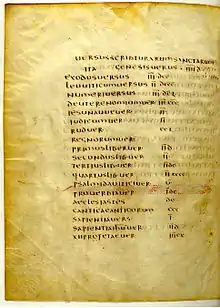 UERSUS SCRIBTURARUM SANCTARUM
ITA GENESIS UERSUS IIIId
EXODUS UERSUS III dcc
LEUITICUM UERSUS II dccc
NUMERI UERSUS III dcl
DEUTERONOMIUM UER III ccc
IESU NAUUE UER II
IUDICUM UER II
RUD UER ccl
REGNORUM UER
PRIMUS LIBER UER II d
SECUNDUS LIB UER II
TERTIUS LIB UER II dc
QUARTUS LIB UER II
PSALMI DAUITICI UER V
PROUERBIA UER I dc
AECLESIASTES dc
CANTICA CANTICORUM ccc
SAPIENTIA UERS I
SAPIENTIA IHU UER II d
XII PROFETAE UER III cx